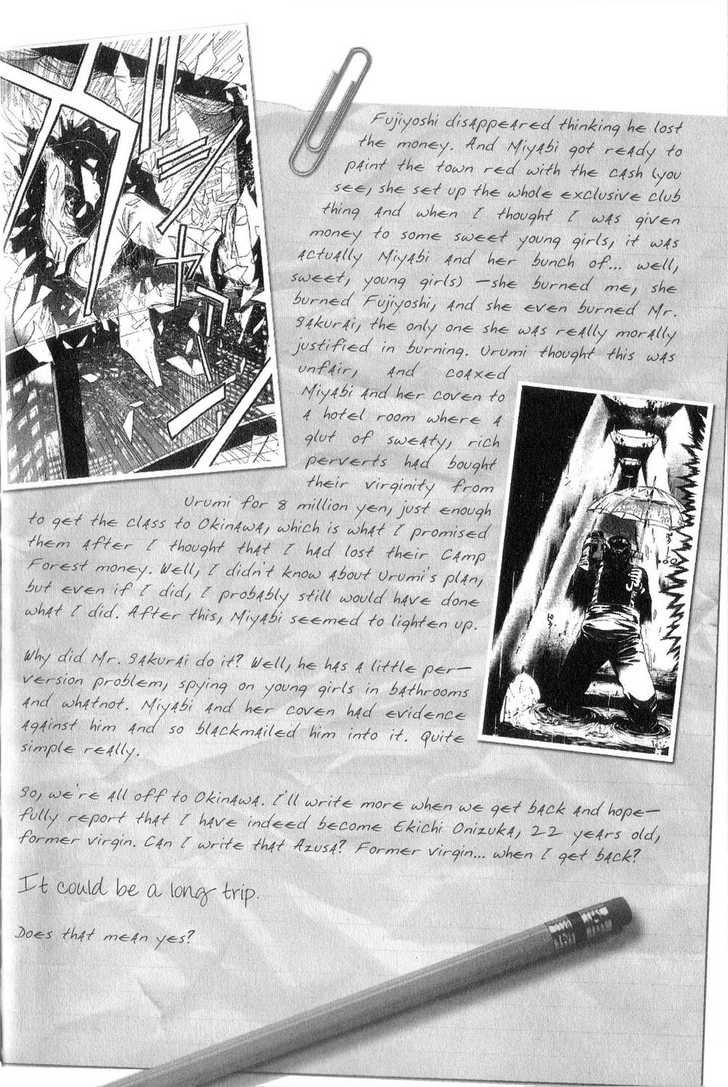 Fujiyoshi disappeared thinking he lost
the money. And Miyabi got ready to
paint the town red with the cash (you
see, she set up the whole exclusive club
thing and when I thought I was given
money to some sweet young girls, it was
actually Miyabi and her bunch of... well,
sweet, young girls) —she burned me, she
burned Fujiyoshi, and she even burned Mr.
Sakurai, the only one she was really morally
justified in burning. Urumi thought this was
unfair, and coaxed
Miyabi and her coven to
a hotel room where a
glut of sweaty, rich
perverts had bought
their virginity from
Urumi for 8 million yen, just enough
to get the class to Okinawa, which is what I promised
them after I thought that I had lost their Camp
Forest money. Well, I didn't know about Urumi's plan,
but even if I did, I probably still would have done
what I did. After this, Miyabi seemed to lighten up.
Why did Mr. Sakurai do it? Well, he has a little per—
version problem, spying on young girls in bathrooms
and whatnot. Miyabi and her coven had evidence
against him and so blackmailed him into it. Quite
simple really.
So, we're all off to Okinawa. I'll write more when we get back and hope—
fully report that I have indeed become Ekichi Onizuka, 22 years old,
former virgin. Can I write that Azusa? Former virgin... when I get back?
It could be a long trip.
Does that mean yes?